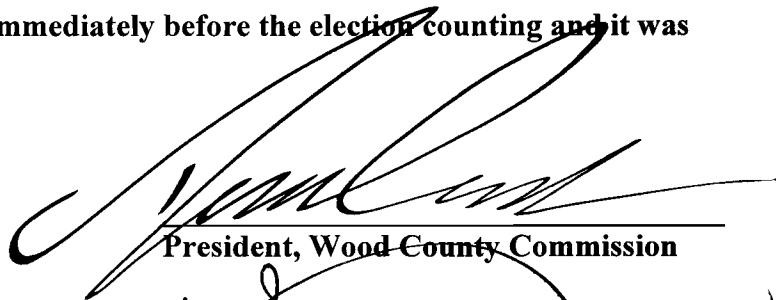 mmediately before the election counting and it was
President, Wood County Commission